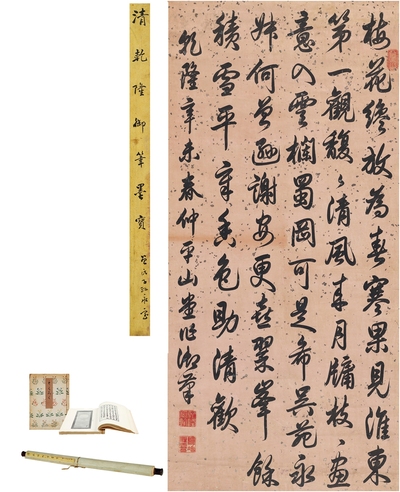 梅花纔放為春寒果見淮東
第一觀馥〻清風來月牖枝〻畫
意入雲欄蜀岡可是希吳苑永
叔何曾遜謝安更喜翠峯餘
積雪平章香色助清歡
乾隆辛未春仲平山堂作御筆
清乾隆御筆墨寶